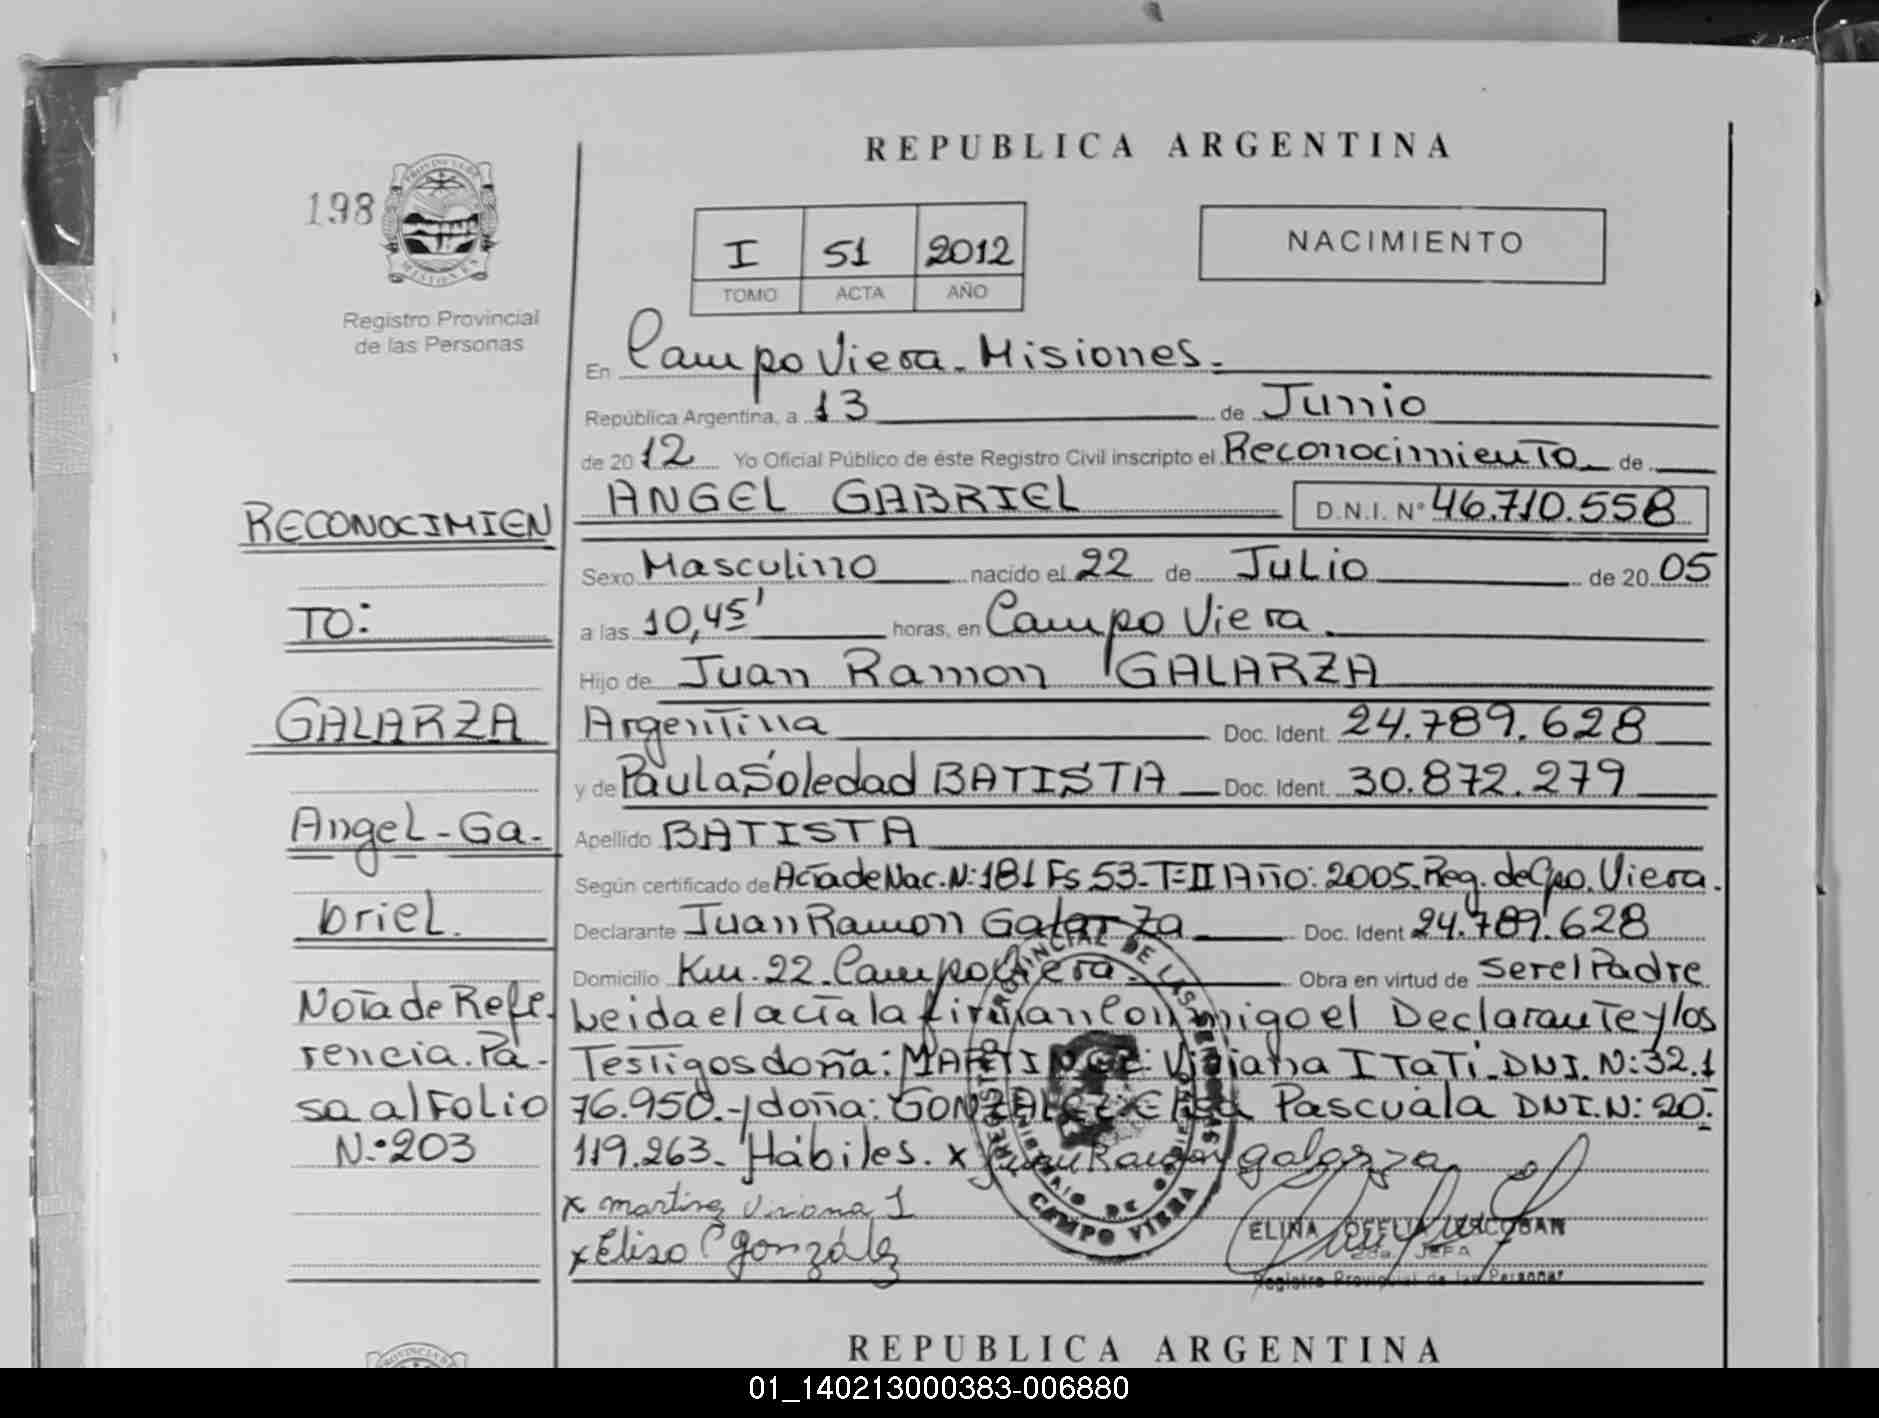 REPUBLICA ARGENTINA
198
PROVINCIA DE
MISIONES
Registro Provincial
de las Personas
I 51 2012
TOMO ACTA AÑO
NACIMIENTO
En Campo Viera - Misiones.-
República Argentina, a 13 de Junio
de 2012 Yo Oficial Público de éste Registro Civil inscripto el Reconocimiento de
ANGEL GABRIEL D.N.I. N° 46.710.558
Sexo Masculino nacido el 22 de Julio de 2005
a las 10,45' horas, en Campo Viera.
Hijo de Juan Ramon GALARZA
Argentina Doc. Ident. 24.789.628
y de Paula Soledad BATISTA Doc. Ident. 30.872.279
Apellido BATISTA
Según certificado de Acta de Nac. N: 181 Fs 53- T=II Año: 2005. Reg. de Cpo. Viera.
Declarante Juan Ramon Galarza Doc. Ident 24.789.628
Domicilio Km. 22. Campo Viera. Obra en virtud de Ser el Padre
Leida el acta la firman Conmigo el Declarante y los
Testigos doña: MARTINEZ: Viviana ITaTí. DNI. N: 32.1
76.950.- y doña: GONZALEZ Elisa Pascuala DNI. N: 20.
119.263. Hábiles. x Juan Ramon galarza
x martinez Viviana I
x Elisa P gonzález
ELINA OFELIA ESCOBAR
JEFA
Registro Provincial de las Personas
REGISTRO PROVINCIAL DE LAS PERSONAS
MINISTERIO DE GOBIERNO
CAMPO VIERA
RECONOCIMIEN
TO:
GALARZA
Angel - Ga-
briel.
Nota de Refe-
rencia. Pa-
sa al Folio
N:203
REPUBLICA ARGENTINA
PROVINCIA DE
01_140213000383-006880